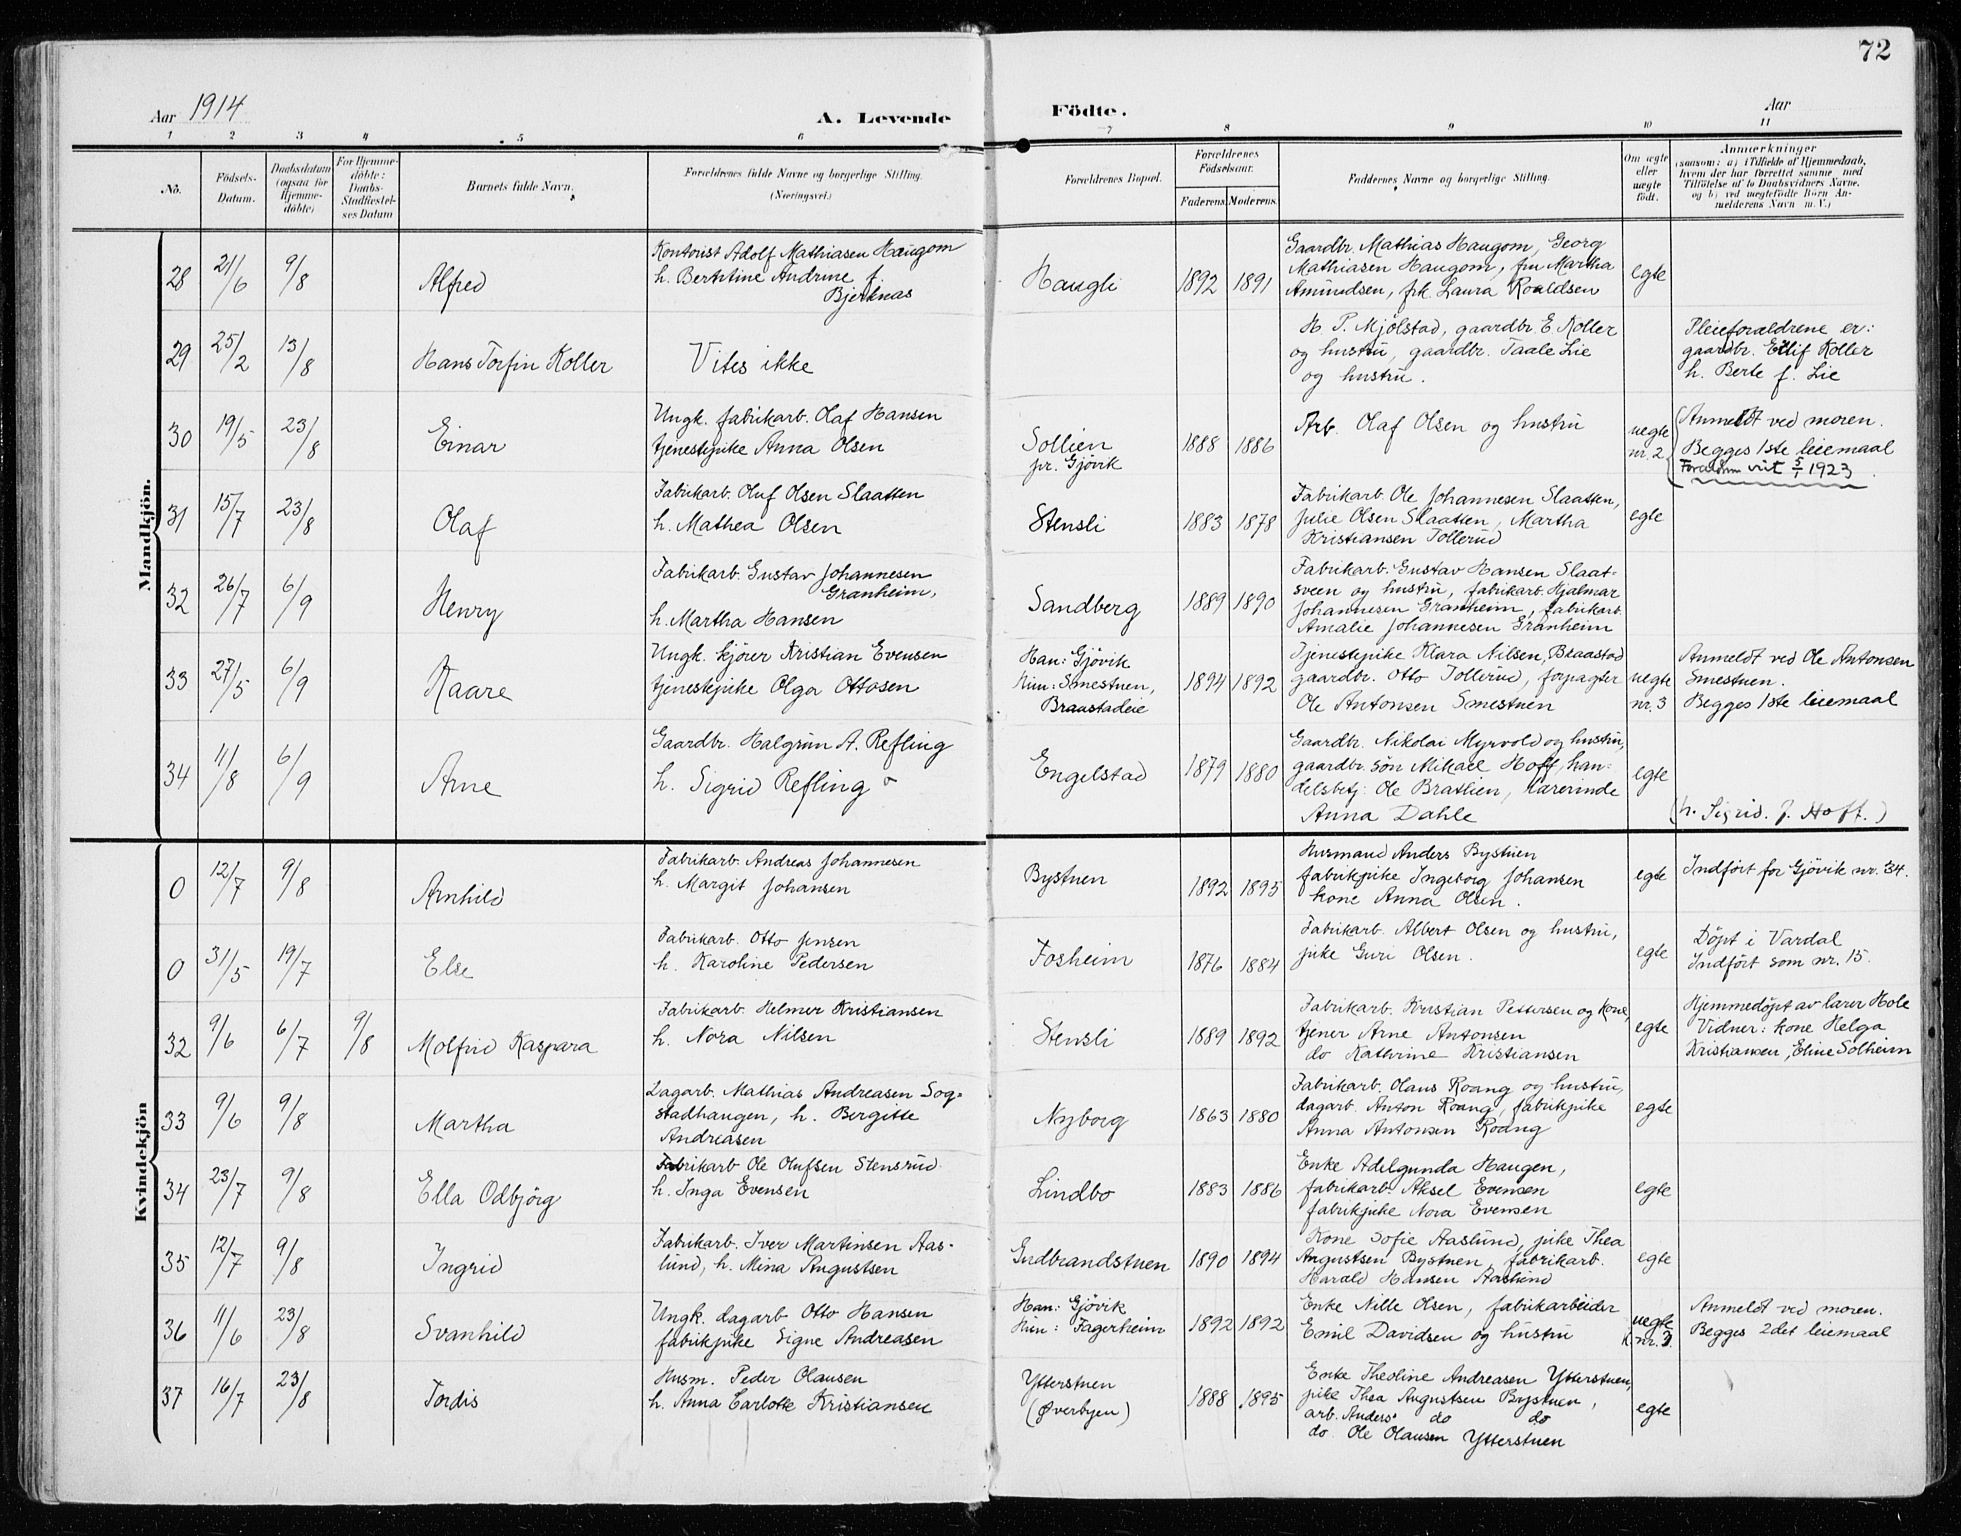 72
Aar 1914
A. Levende
Födte.
Aar
1 2 3 4 5 6 7 8 9 10 11
No.
Födsels-
Datum.
Daabsdatum
(ogsaa for
Hjemme-
döbte)
For Hjemme-
döbte:
Daabs-
Stadfæstel-
ses Datum
Barnets fulde Navn.
Forældrenes fulde Navne og borgerlige Stilling.
(Næringsvei.)
Forældrenes Bopæl.
Forældrenes
Födselsaar.
Faderens. Moderens.
Faddernes Navne og borgerlige Stilling.
Om ægte
eller
uægte
födt.
Anmærkninger
(saasom: a) i Tilfælde af Hjemmedaab,
hvem der har forrettet samme med
Tilföielse af to Daabsvidners Navne.
og b) ved uægtefödte Börn An-
melderens Navn m. V.)
Mandkjön.
28 21/6 9/8 Alfred
Kontorist Adolf Mathiasen Haugom
h. Berntine Andrine f.
Bjerknas
Haugli 1892 1891
Gaardbr. Mathias Haugom, Georg
Mathiasen Haugom, fru Martha
Amundsen, frk. Laura Roaldsen
egte
29 25/2 13/8 Hans Torfin Koller
Vites ikke
H. P. Mjölstad, gaardbr. E Koller
og hustru, gaardbr. Taale Lie
og hustru.
Pleieforældrene er:
gaardbr. Eilif Koller
h. Berte f. Lie
30 19/5 23/8 Einar
Ungk. fabrikarb. Olaf Hansen
tjenestepike Anna Olsen
Sollien
pr. Gjövik
1888 1886
Arb. Olaf Olsen og hustru
uegte
nr. 2
Anmeldt ved moren.
Begges 1ste leiemaal
viet 5/1 1923.
31 15/7 23/8 Olaf
Fabrikarb. Oluf Olsen Slaatten
h. Mathea Olsen
Stensli 1883 1878
Fabrikarb. Ole Johannesen Slaatten,
Julie Olsen Slaatten, Martha
Kristiansen Tollerud
egte
32 26/7 6/9 Henry
Fabrikarb. Gustav Johannesen
Granheim,
h. Martha Hansen
Sandberg 1889 1890
Fabrikarb. Gustav Hansen Slaat-
sveen og hustru, fabrikarb. Hjalmar
Johannesen Granheim, fabrikarb.
Amalie Johannesen Granheim
33 27/5 6/9 Kaare
Ungk. kjörer Kristian Evensen
tjenestepike Olga Ottosen
Han: Gjövik
Hun: Smestuen,
Braastadeie
1894 1892
Tjenestepike Klara Nilsen, Braastad
gaardbr. Otto Tollerud, forpagter
Ole Antonsen Smestuen
uegte
nr. 3
Anmeldt ved Ole Antonsen
Smestuen.
Begges 1ste leiemaal
34 11/8 6/9 Arne
Gaardbr. Halgrim A. Refling
h. Sigrid Refling
Engelstad 1879 1880
Gaardbr. Nikolai Myrvold og hustru,
gaardbr. sön Mikael Hoff, han-
delsbetj: Ole Bratlien, lærerinde
Anna Dahle
egte
(h. Sigrid. f. Hoff.)
Kvindekjön
0 12/7 9/8 Arnhild
Fabrikarb. Andreas Johannesen
h. Margit Johansen
Bystuen 1892 1895
Husmand Anders Bystuen
fabrikpike Ingeborg Johansen
kone Anna Olsen.
egte
Indfört for Gjövik nr. 34.
0 31/5 19/7 Else
Fabrikarb. Otto Jensen
h. Karoline Pedersen
Fosheim 1876 1884
Fabrikarb. Albert Olsen og hustru,
pike Guri Olsen.
egte
Döpt i Vardal
Indfört som nr. 15.
32 9/6 6/7 9/8 Molfrid Kaspara
Fabrikarb. Helmer Kristiansen
h. Nora Nilsen
Stensli 1889 1892
Fabrikarb. Kristian Pettersen og kone,
tjener Arne Antonsen
do Kathrine Kristiansen
egte
Hjemmedöpt av lærer Hole
Vidner: kone Helga
Kristiansen, Eline Solheim
33 9/6 9/8 Martha
Dagarb. Mathias Andreasen Sog-
stadhaugen, h. Bergitte
Andreasen
Nyborg 1863 1880
Fabrikarb. Olaus Roang og hustru,
dagarb. Anton Roang, fabrikpike
Anna Antonsen Roang
egte
34 23/7 9/8 Ella Odbjörg
Fabrikarb Ole Olufsen Stensrud
h. Inga Evensen
Lindbo 1883 1886
Enke Adelgunda Haugen,
fabrikarb. Aksel Evensen
fabrikpike Nora Evensen
egte
35 12/7 9/8 Ingrid
Fabrikarb. Iver Martinsen Aas-
lund, h. Mina Augustsen
Gudbrandstuen 1890 1894
Kone Sofie Aaslund, pike Thea
Augustsen Bystuen, fabrikarb.
Harald Hansen Aaslund
egte
36 11/6 23/8 Svanhild
Ungk. dagarb Otto Hansen
fabrikpike Signe Andreasen
Han: Gjövik
Hun: Fagerheim
1892 1892
Enke Nille Olsen, fabrikarbeider
Emil Davidsen og hustru
uegte
nr. 3.
Anmeldt ved moren.
Begges 2det leiemaal
37 16/7 23/8 Tordis
Husm. Peder Olausen
h. Anna Carlotte Kristiansen
Ytterstuen
(Øverbyen)
1888 1895
Enke Theoline Andreasen Ytterstuen,
pike Thea Augustsen Bystuen,
arb. Anders do do
do. Ole Olausen Ytterstuen
egte